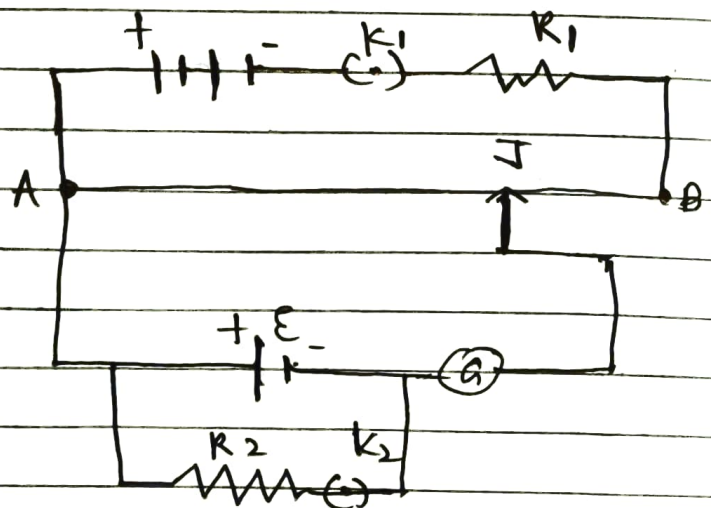 + - K1 R1
J
A B
+ ε -
G
R2 K2